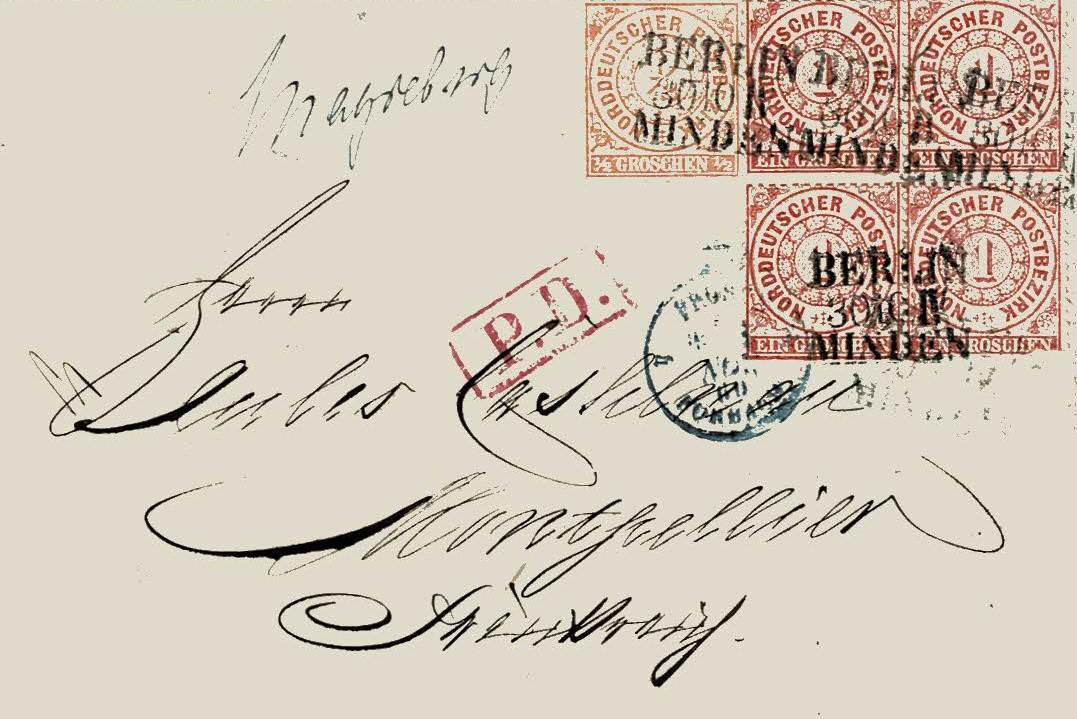 NORDDEUTSCHER POSTBEZIRK
1/2 GROSCHEN 1/2
NORDDEUTSCHER POSTBEZIRK
1
EIN GROSCHEN
NORDDEUTSCHER POSTBEZIRK
1
EIN GROSCHEN
NORDDEUTSCHER POSTBEZIRK
1
EIN GROSCHEN
NORDDEUTSCHER POSTBEZIRK
1
EIN GROSCHEN
BERLIN
30 10 II
MINDEN
BERLIN
30 10 IV
MINDEN
Magdeburg
P.D.
Herrn
Montpellier
Frankreich.